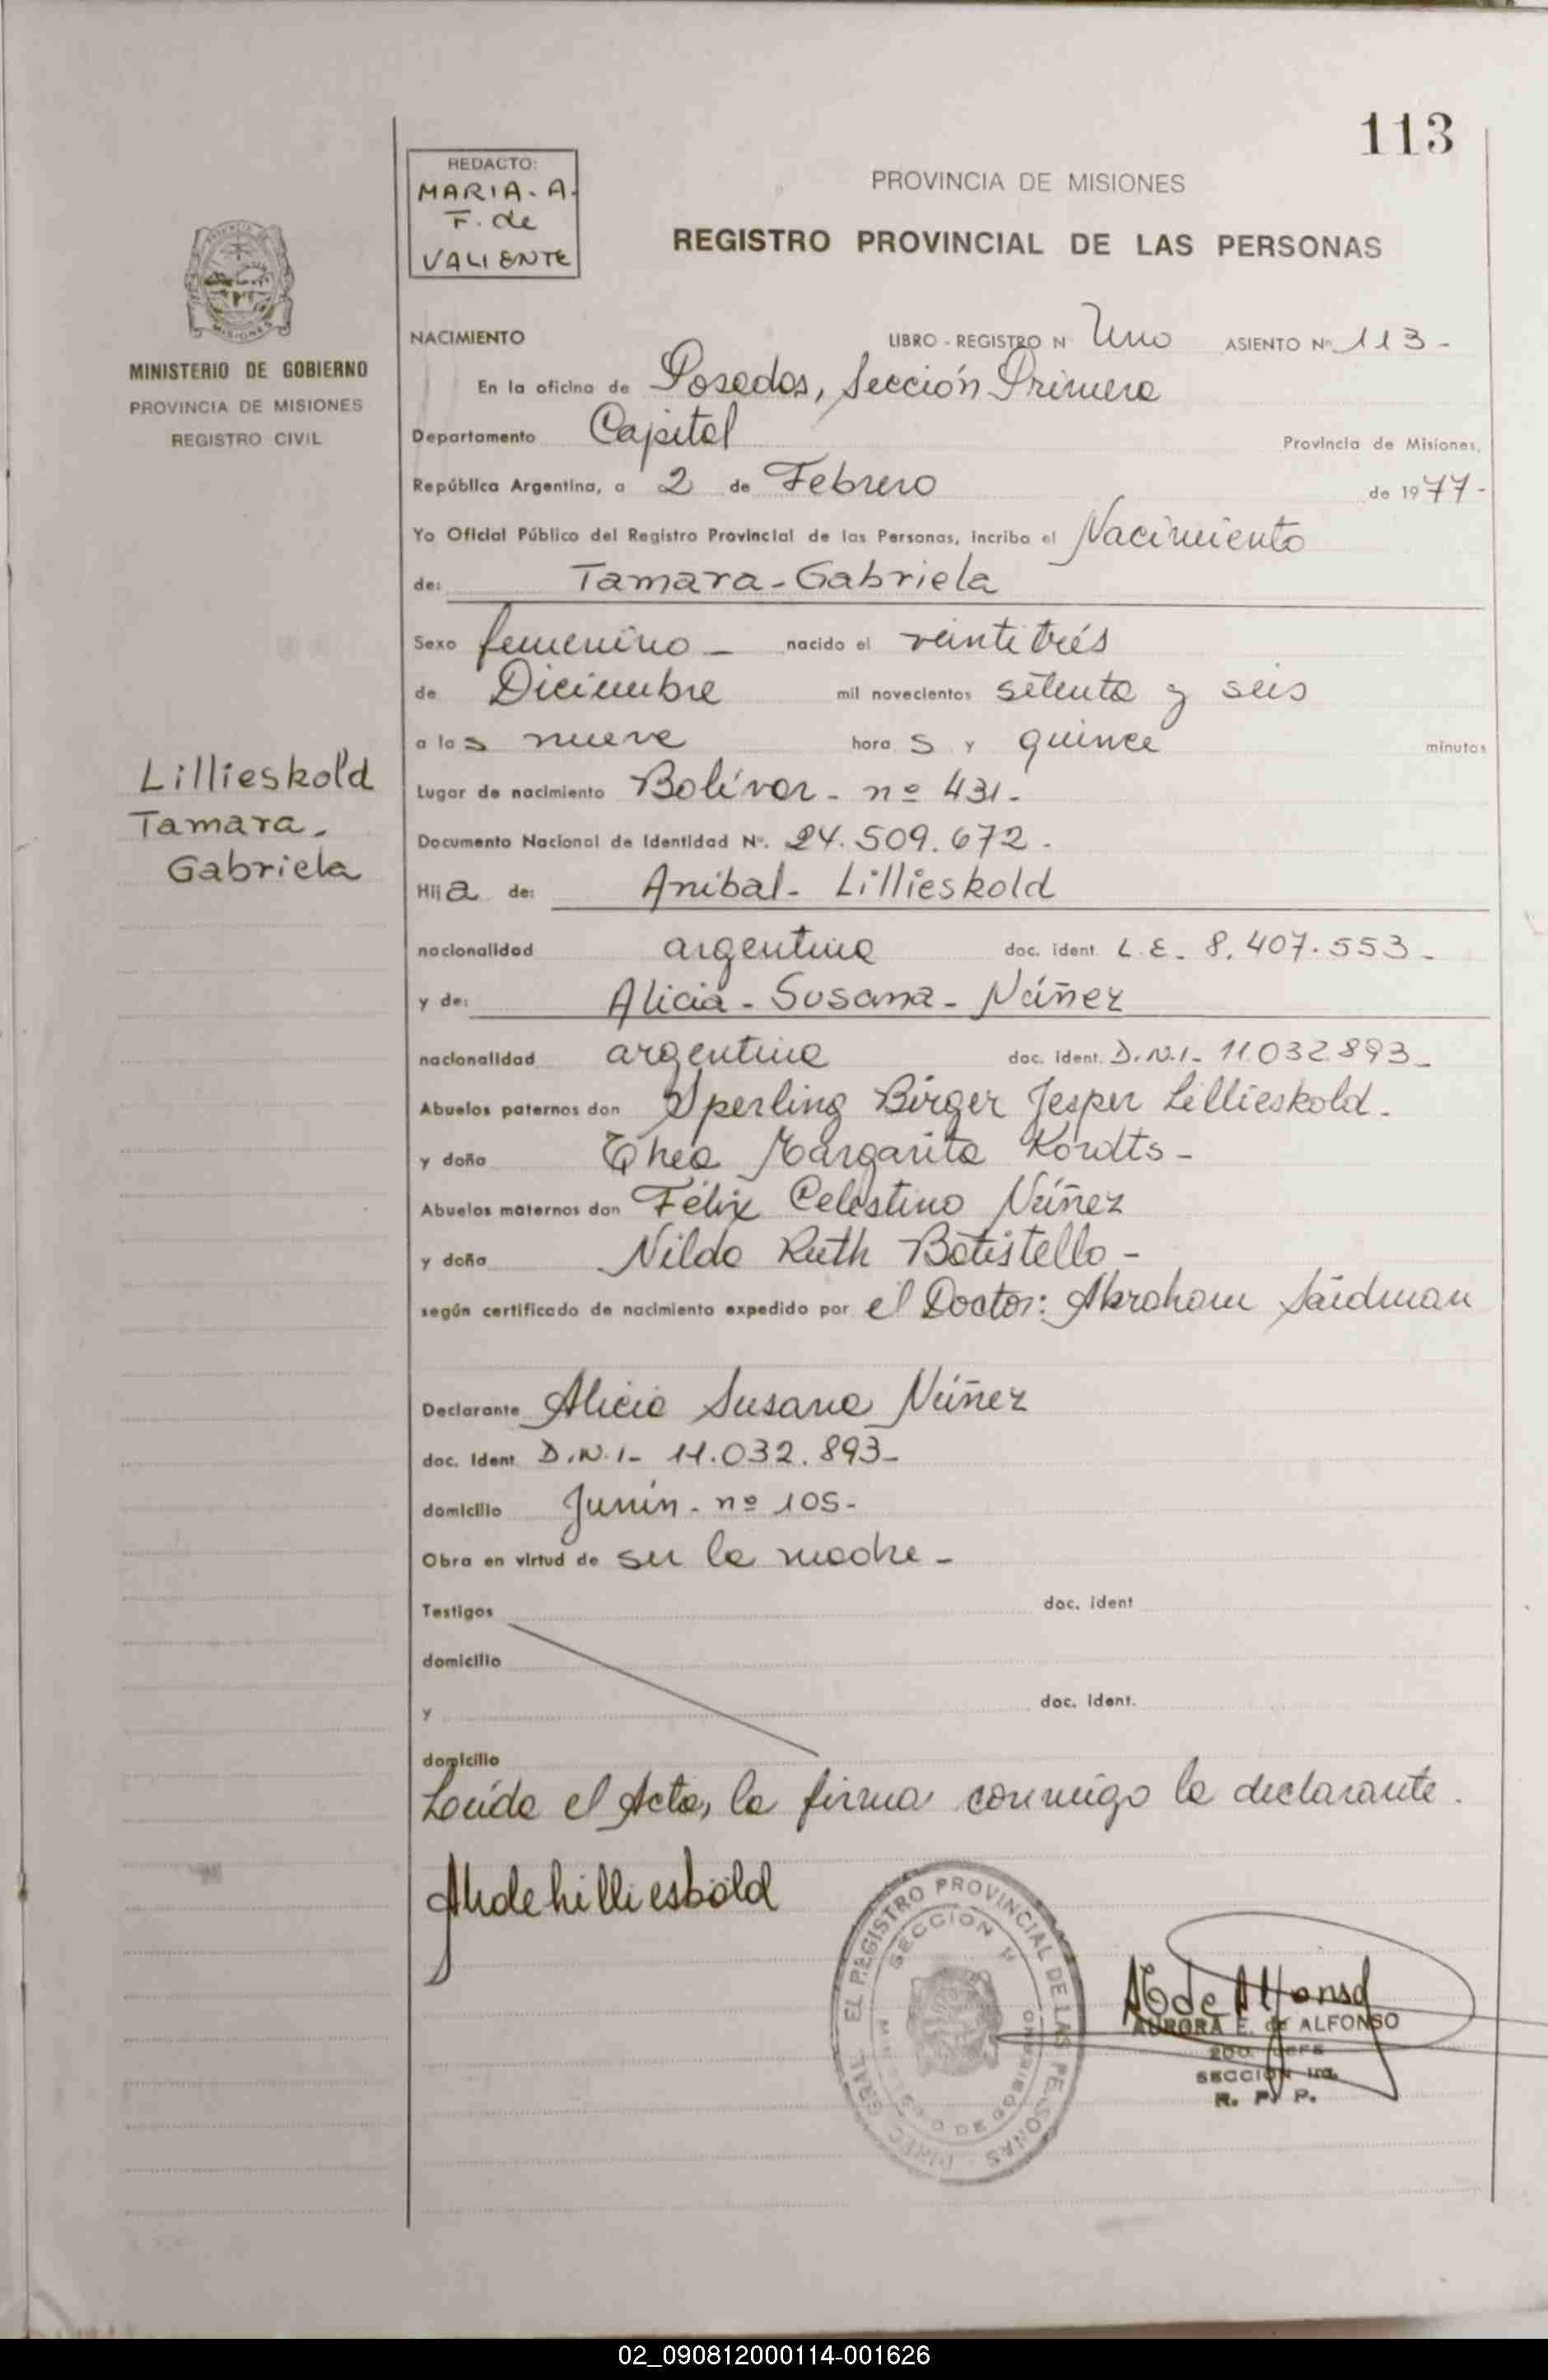 113
REDACTO:
MARIA - A.
F. de
VALIENTE
PROVINCIA DE MISIONES
REGISTRO PROVINCIAL DE LAS PERSONAS
MISIONES
MINISTERIO DE GOBIERNO
PROVINCIA DE MISIONES
REGISTRO CIVIL
NACIMIENTO LIBRO - REGISTRO N Uno ASIENTO Nº 113 -
En la oficina de Posadas, Sección Primera
Departamento Capital Provincia de Misiones,
República Argentina, a 2 de Febrero de 1977 -
Yo Oficial Público del Registro Provincial de las Personas, incribo el Nacimiento
de: Tamara - Gabriela
Sexo femenino - nacido el veintitrés
de Diciembre mil novecientos setenta y seis
a las nueve horas y quince minutos
Lillieskold
Tamara.
Gabriela
Lugar de nacimiento Bolívar - nº 431 -
Documento Nacional de Identidad Nº. 24.509.672 -
Hija de: Anibal - Lillieskold
nacionalidad argentina doc. ident. L.E. 8.407.553 -
y de: Alicia - Susana - Núñez
nacionalidad argentina doc. ident. D.N.I - 11.032.893 -
Abuelos paternos don Sperling Birger Jesper Lillieskold -
y doña Thea Margarita Kordts -
Abuelos maternos don Félix Celestino Núñez
y doña Nilda Ruth Batistello -
según certificado de nacimiento expedido por el Doctor: Abraham Saidman
Declarante Alicia Susana Núñez
doc. Ident D.N.I - 11.032.893 -
domicilio Junín - nº 105 -
Obra en virtud de ser la madre -
Testigos doc. ident
domicilio
y doc. ident.
domicilio
Leída el Acta, la firma conmigo la declarante.
DIREC. GRAL. EL REGISTRO PROVINCIAL DE LAS PERSONAS
SECCION 1ª
MINISTERIO DE GOBIERNO
AURORA E. de ALFONSO
2DO. JEFE
SECCION 1ra.
R. P. P.
02_090812000114-001626